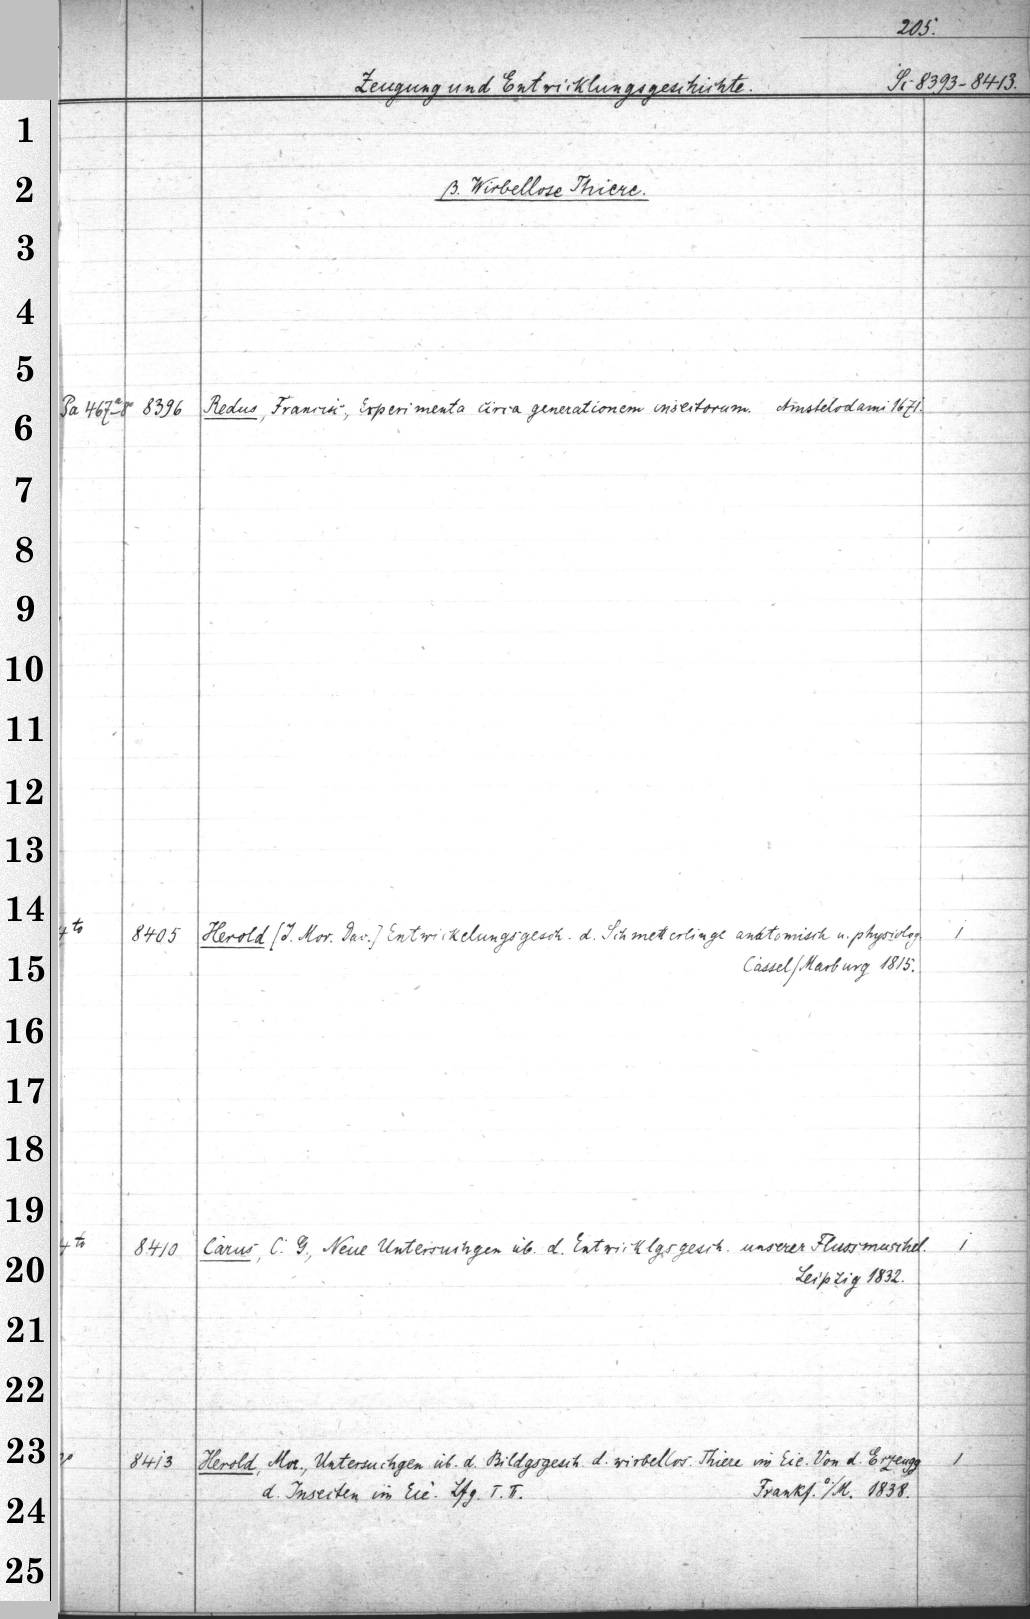 205.
Zeugung und Entwicklungsgeschichte. Si 8393-8413.
1
2
β. Wirbellose Thiere.
3
4
5
Pa 467ª 8° 8396 Redus, Francisc., Experimenta circa generationem insectorum. Amstelodami 1671.
6
7
8
9
10
11
12
13
14
4to 8405 Herold [J. Mor. Dav.] Entwickelungsgesch. d. Schmetterlinge anatomisch u. physiolog. 1
15 Cassel/Marburg 1815.
16
17
18
19
4to 8410 Carus, C. G., Neue Untersuchgen üb. d. Entwicklgsgesch. unserer Flussmuschel. 1
20 Leipzig 1832.
21
22
23 8413 Herold, Mor., Untersuchgen üb. d. Bildgsgesch. d. wirbellos. Thiere im Eie. Von d. Erzeugg 1
d. Insecten im Eie. Lfg. I. II. Frankf. a/M. 1838.
24
25